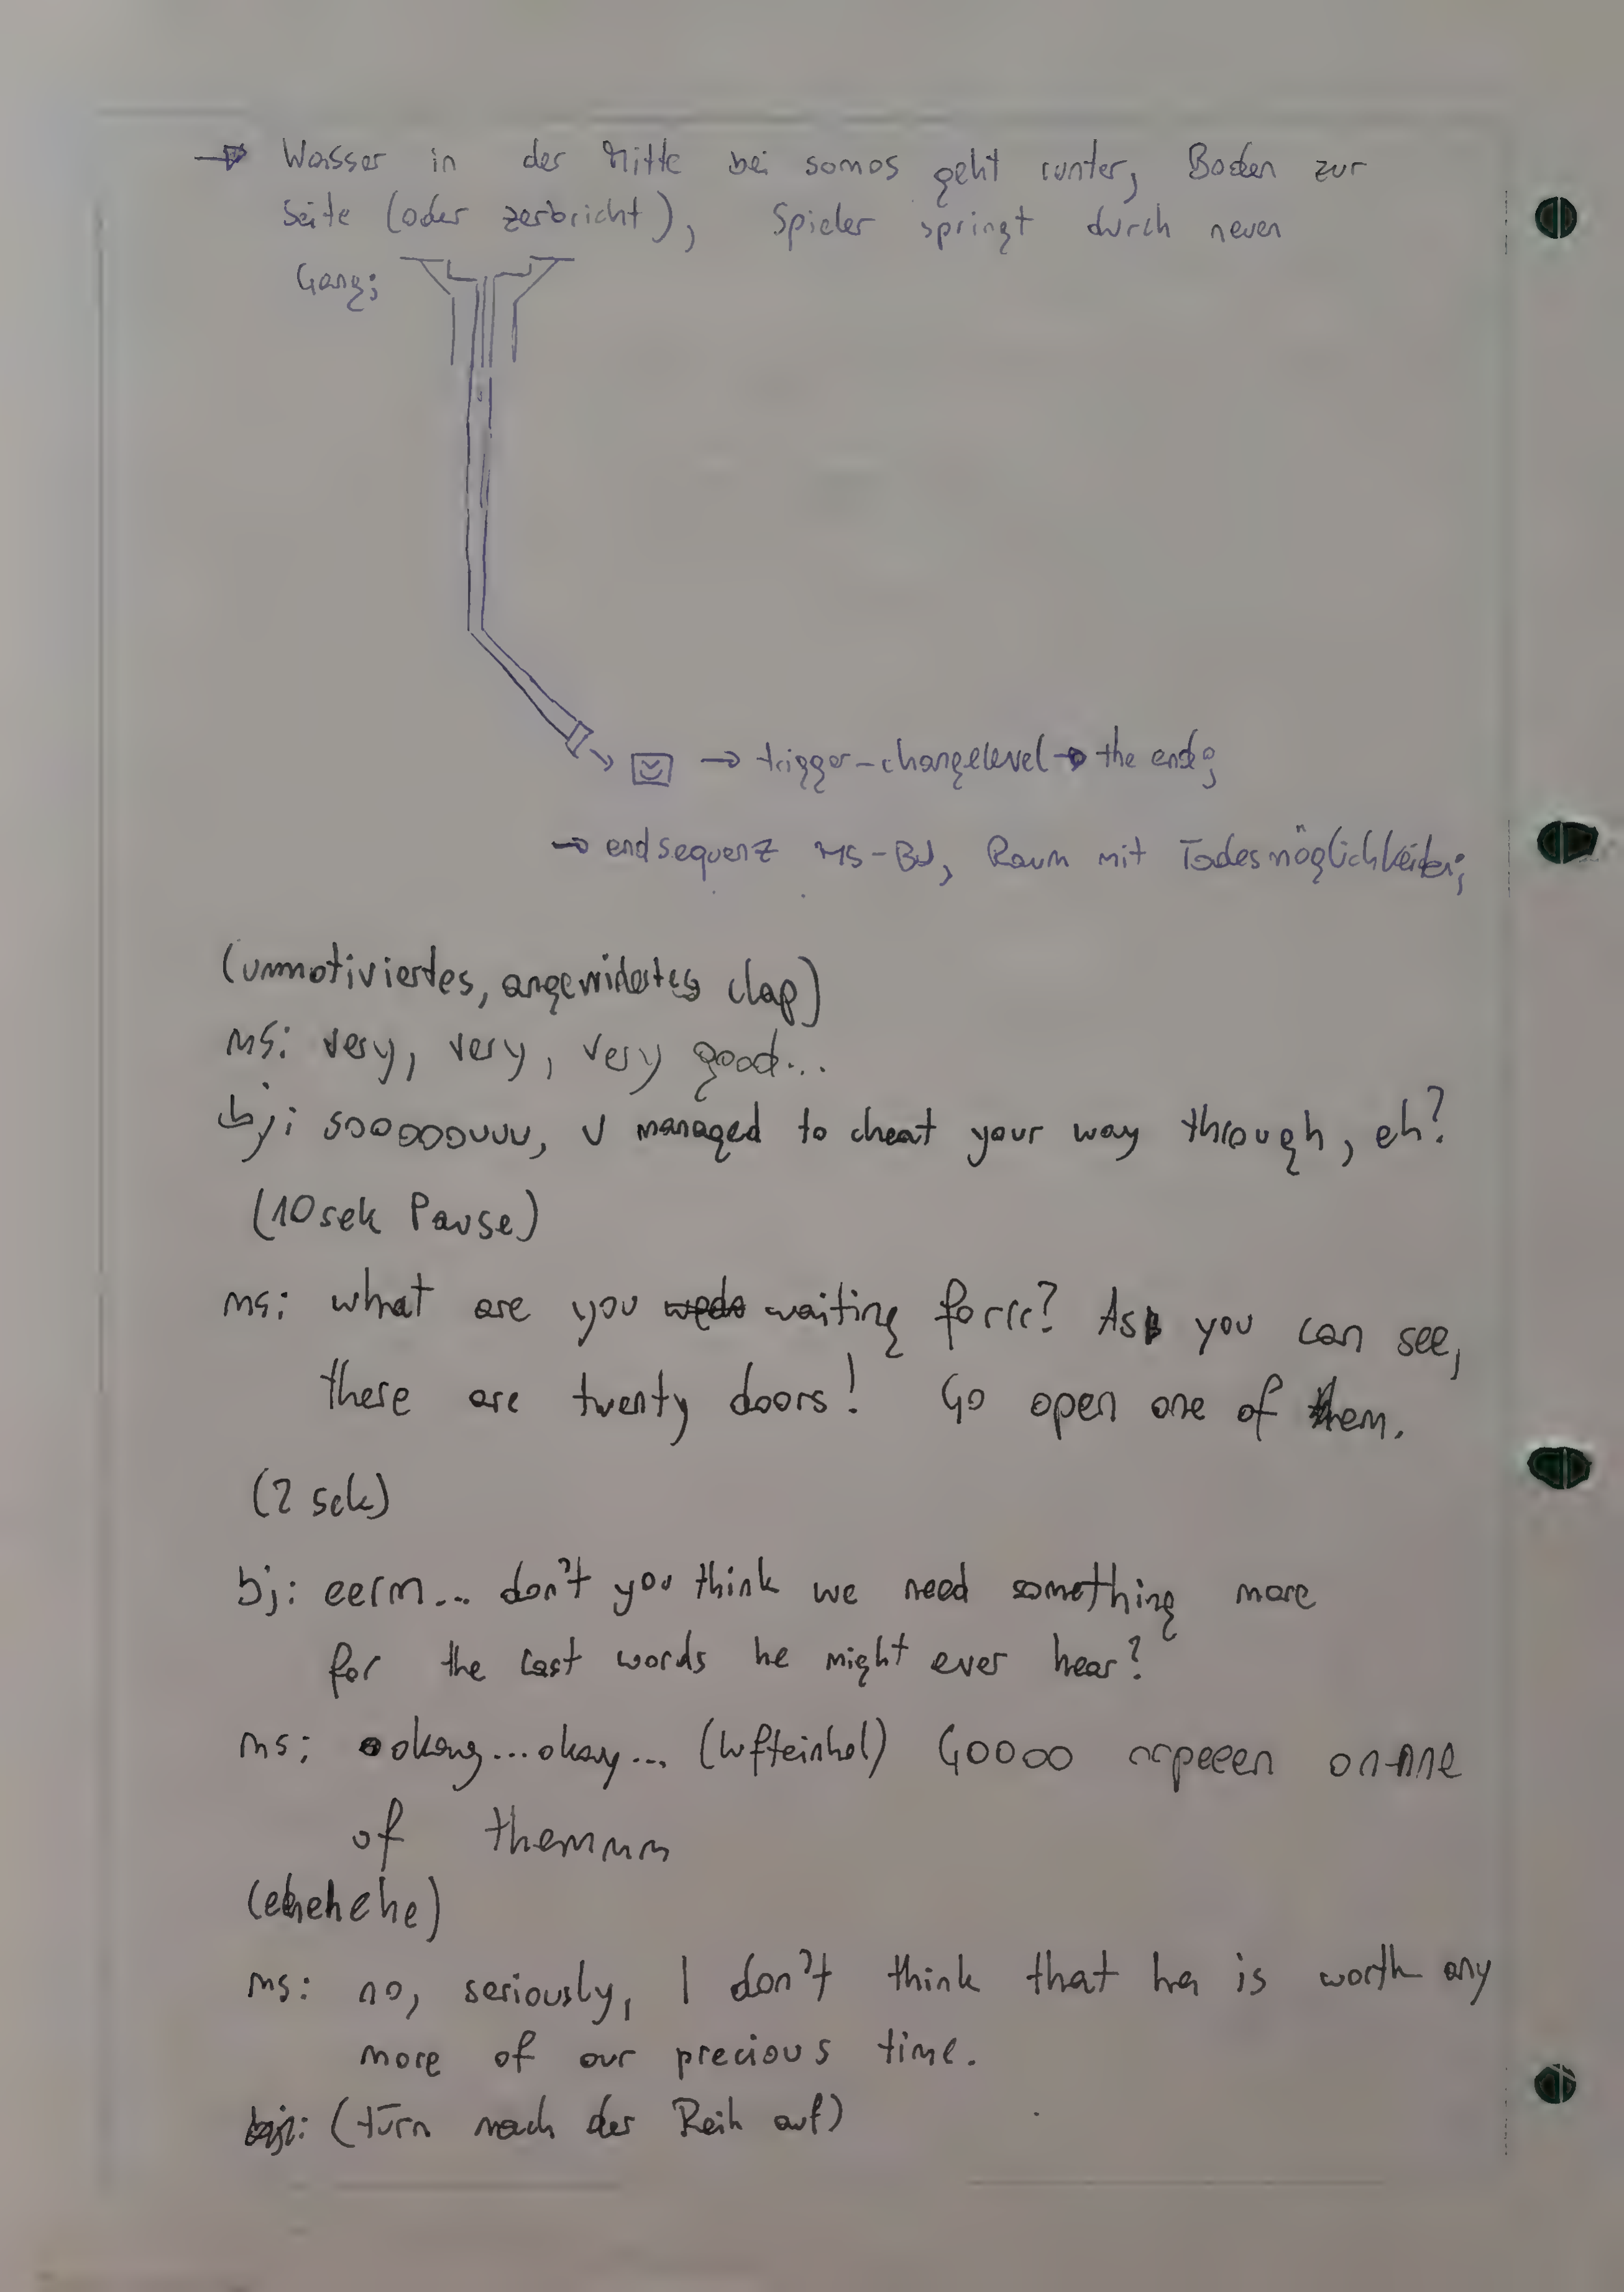 → Wasser in der Mitte bei somos geht runter, Boden zur
Seite (oder zerbricht), Spieler springt durch neuen
Gang;
→ trigger-changelevel → the end;
→ endsequenz MS-BJ, Raum mit Todesmöglichkeiten;
(unmotiviertes, angewidertes clap)
ms: very, very, very good...
bj: soooooouuu, U managed to cheat your way through, eh?
(10sek Pause)
ms: what are you waiting forrr? As you can see,
there are twenty doors! Go open one of them.
(2 sek)
bj: eerm... don't you think we need something more
for the last words he might ever hear?
ms: okay...okay... (lufteinhol) Goooo oopeeen onnne
of themmmm
(ehehehe)
ms: no, seriously, I don't think that he is worth any
more of our precious time.
(türn nach der Reih auf)